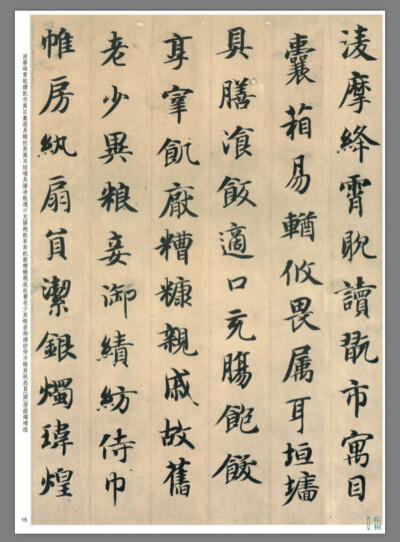 淩摩絳霄耽讀翫市寓目
囊箱易輶攸畏属耳垣墻
具膳湌飯適口充腸飽飫
享宰飢厭糟糠親戚故舊
老少異粮妾御績紡侍巾
帷房紈扇員潔銀燭瑋煌
15